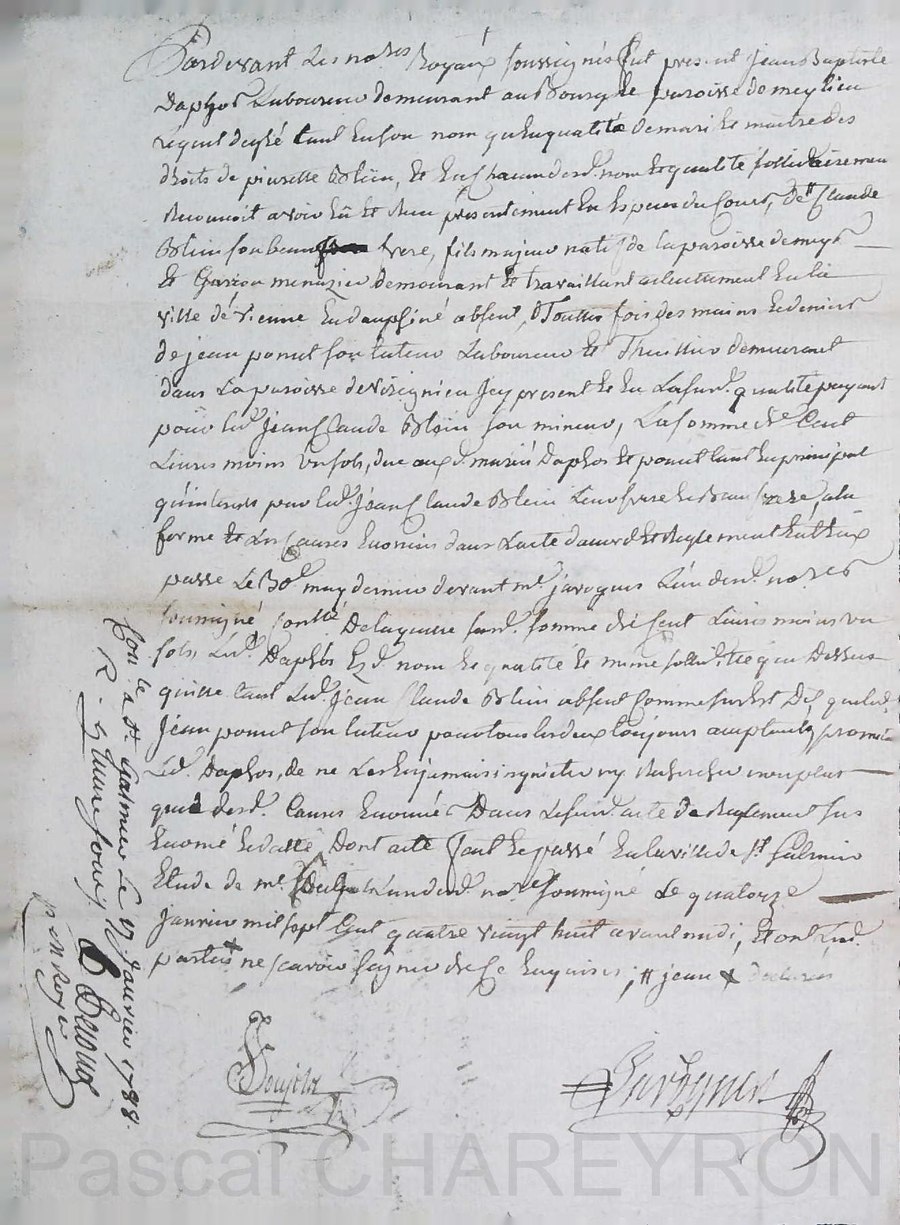 Pardevant Les no.res Royaux soussignés fut present jean Baptiste
Daphos Laboureur demeurant au Bourg de paroisse de meylieu
Lequel de gré tant En son nom qu'en qualité de mari Et maitre des
droits de pierrette Blein, Et En chacun desd. nom Et qualité sollidairement
Reconnoit avoir Eu Et Reçu présentement En Especes du Cours, de # Claude
Blein son beau frere, fils majeur natif de la paroisse de meyl.
Et Garçon menuzier Demeurant Et travaillant actuellement En la
ville de vienne En dauphiné absent, Touttes fois des mains Et deniers
de jean ponut son tuteur Laboureur Et Thuillier demeurant
dans La paroisse de Vizignieu Icy present Et En La susd. qualité payant
pour led. Jean Claude Blein son mineur, La somme de Cent
Livres moins un sols, due aux d. mariés Daphos Et ponut tant En principal
qu'interets pour led. Jean Claude Blein Leur frere Et Beau frere, a la
forme Et Les Causes Enoncées dans L'acte d'accord Et Reglement Entr'eux
passé Le 30e may dernier devant me. javogues L'un desd. no.res
soussigné De laquelle susd. somme de Cent Livres moins un
sols, Led. Daphos Esd. nom Et qualité Et meme sollidité que Dessus
quitte tant Led. Jean Claude Blein absent Comme susEst Dit que led.
Jean ponut son tuteur pour tous les deux toujours acceptant, promet
Led. Daphos, de ne Les En jamais inquieter ny Rechercher non plus
que desd. Causes Enoncées Dans Le susd. acte de Reglement sus
Enoncé Et datté, Dont acte fait Et passé En la ville de St. Galmier
Etude de me. L'un desd. no.res soussigné Le quatorze
janvier mil sept Cent quatre vingt huit avant midi, Et ont Lesd.
parties ne scavoir signer de ce Enquises ; # jean + declarés
Con.lé a St. Galmier Le 17 Janvier 1788.
R.
Javogues
Pascal CHAREYRON